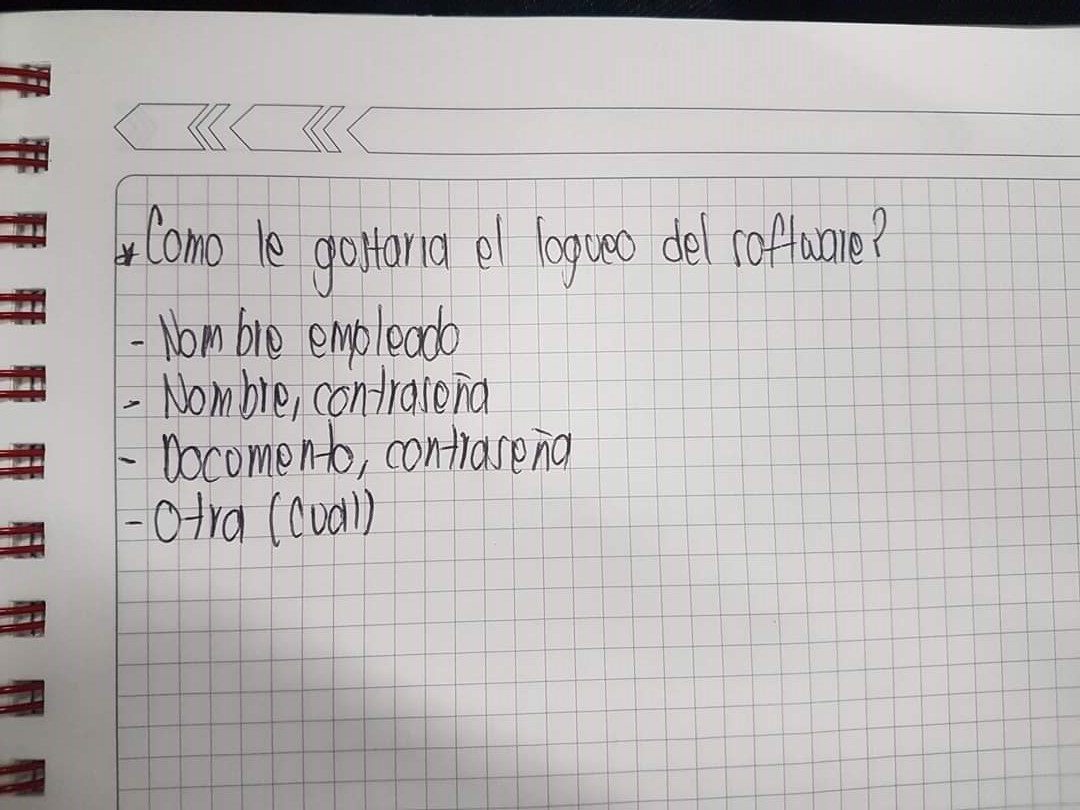 * Como le gustaria el logueo del software?
- Nombre empleado
- Nombre, contraseña
- Documento, contraseña
- Otra (cual)